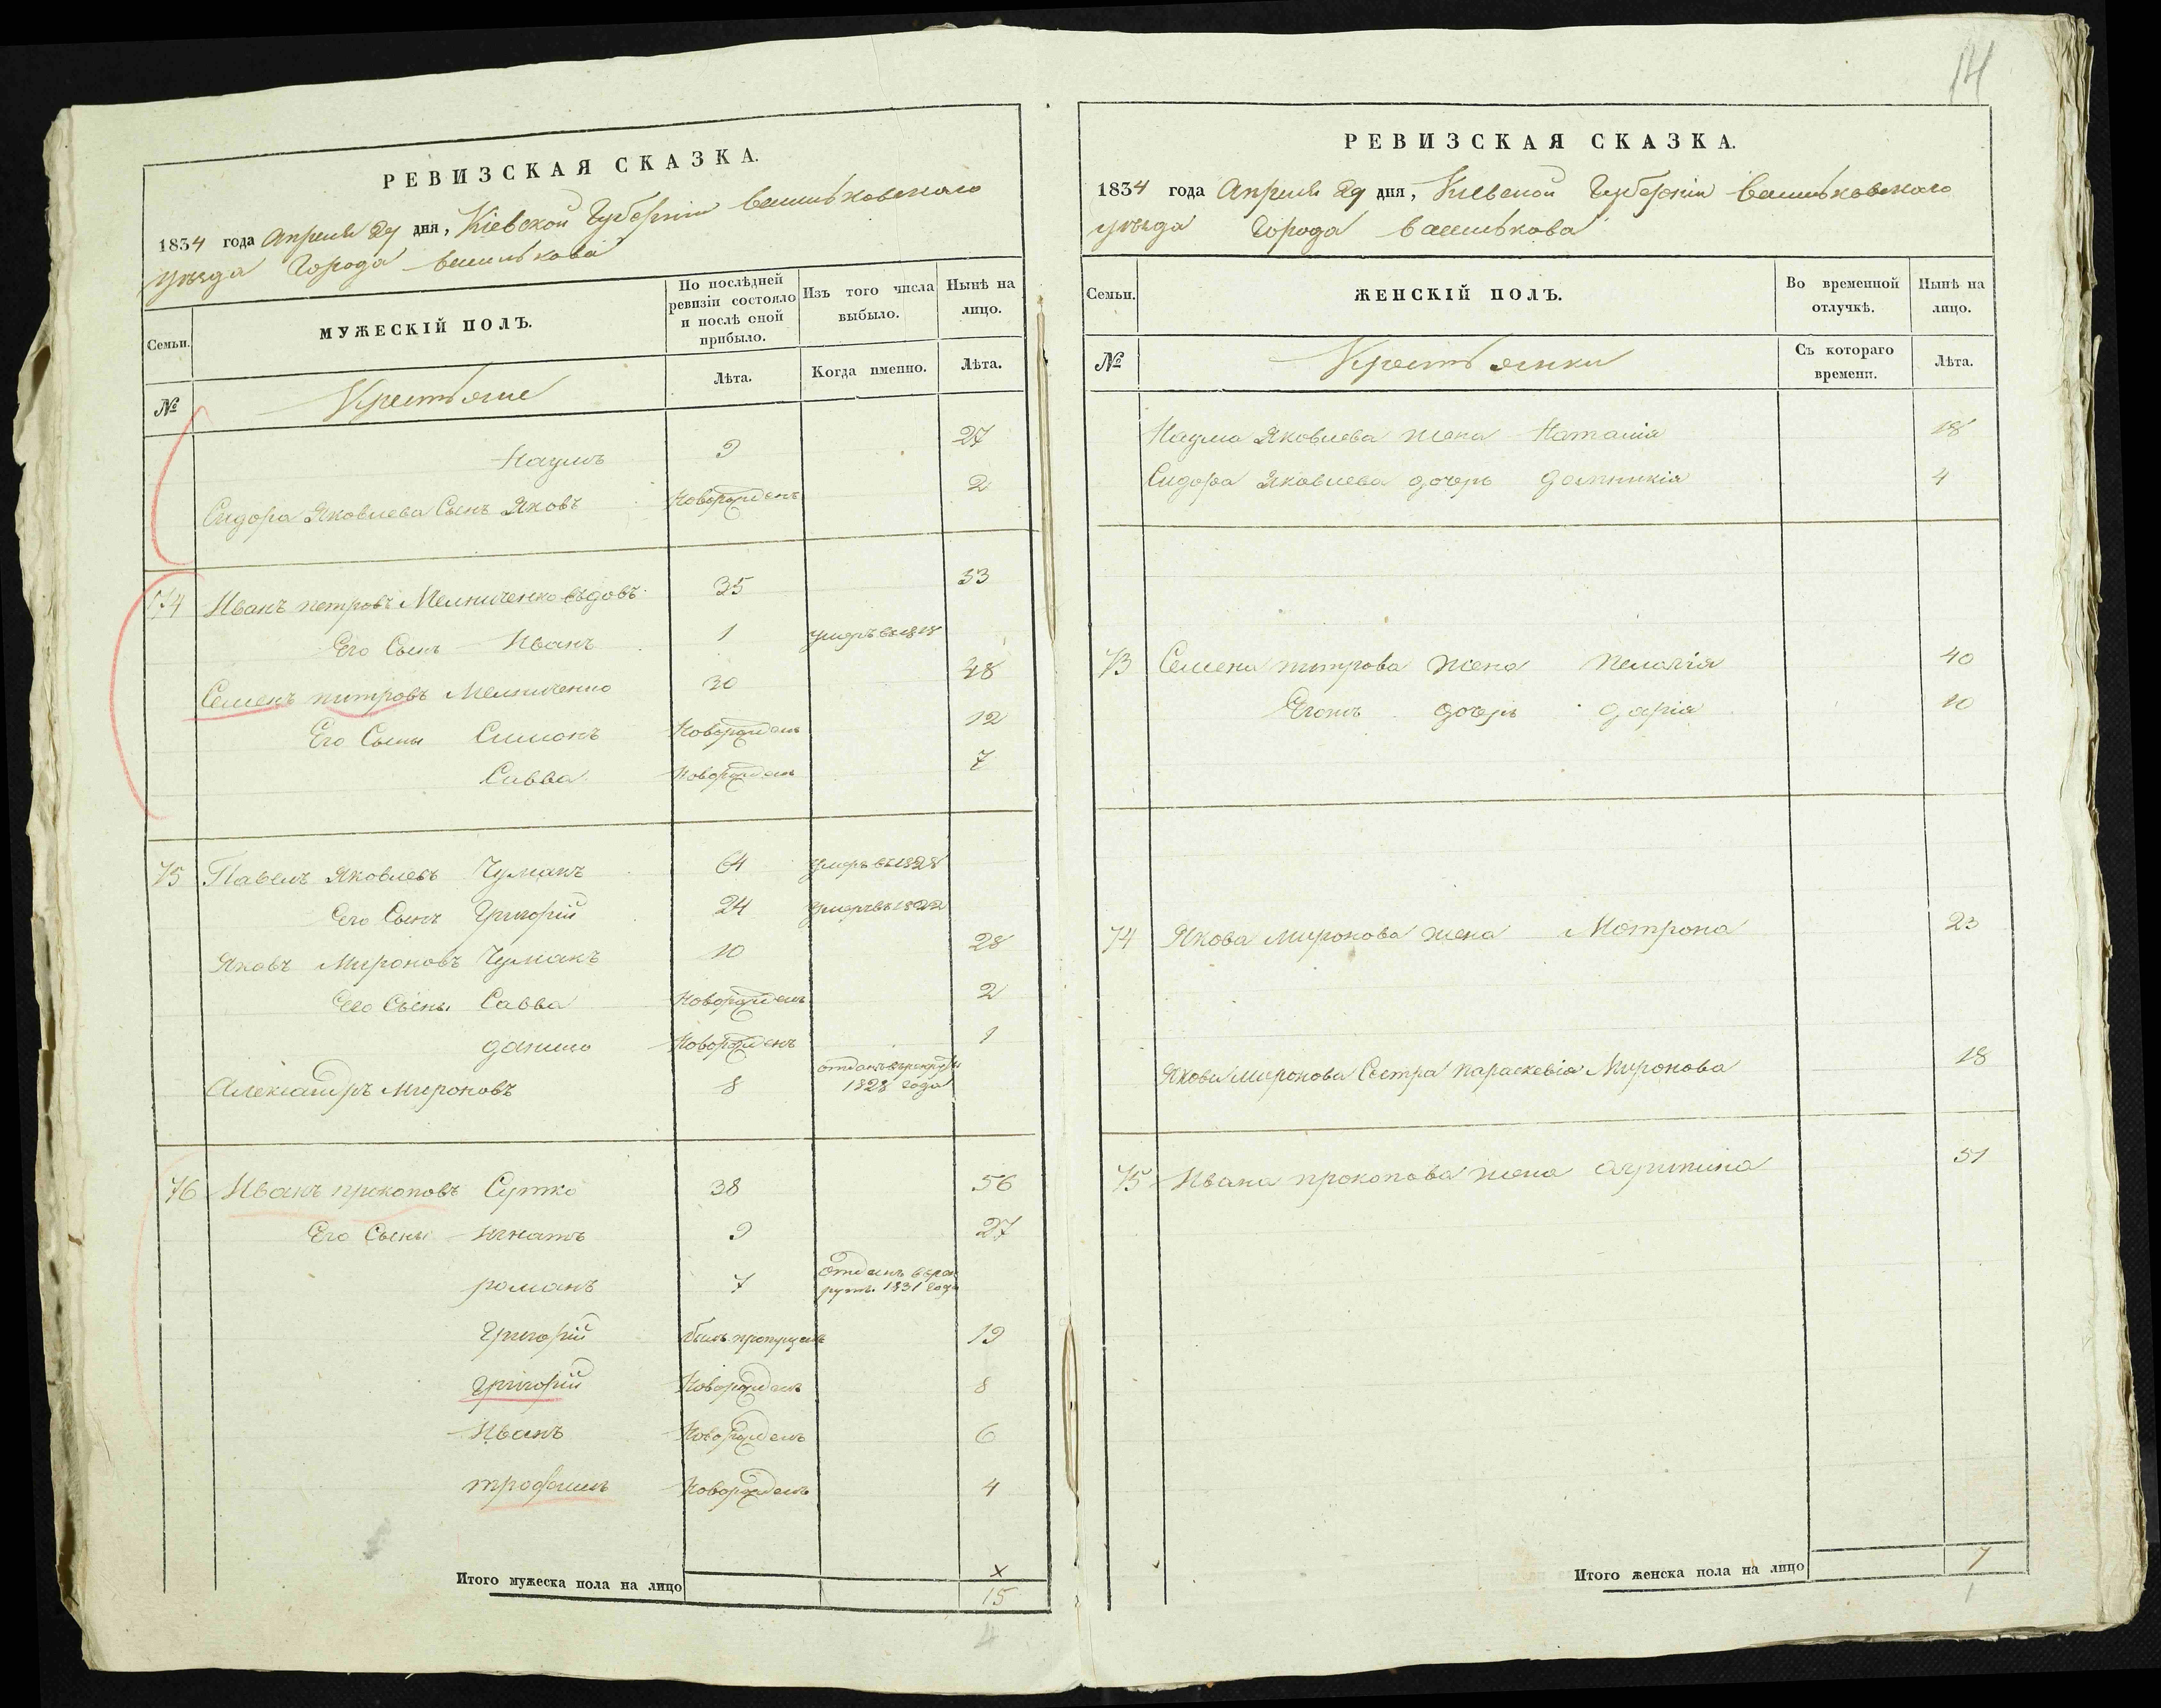 14
РЕВИЗСКАЯ СКАЗКА.
1834 года Апреля 29 дня, Кіевской Губерніи Васильковского
уѣзда Города Василькова
Семьи.
МУЖЕСКІЙ ПОЛЪ.
По послѣдней ревизіи состояло и послѣ оной прибыло.
Изъ того числа выбыло.
Нынѣ на лицо.
№
Крестьяне
Лѣта.
Когда именно.
Лѣта.
Наумъ 9 27
Сидора Яковлева Сынъ Яковъ Новорожденъ 2
74 Иванъ петровъ Мелниченко вдовъ 35 53
Его Сынъ Иванъ 1 умеръ въ 1818
Семенъ питровъ Мелниченко 30 48
Его Сыны Симонъ Новорожденъ 12
Савва Новорожденъ 7
75 Павелъ Яковлевъ Чумакъ 64 умеръ въ 1828
Его Сынъ Григорій 24 умеръ въ 1822
Яковъ Мироновъ Чумакъ 10 28
Его Сыны Савва Новорожденъ 2
данило Новорожденъ 1
Александръ Мироновъ 8 отданъ въ рекруты 1828 года
76 Иванъ прокоповъ Суpко 38 56
Его Сыны Игнатъ 9 27
романъ 7 Отданъ в рекруты 1831 года
Григорій былъ пропущенъ 19
Григорій Новорожденъ 8
Иванъ Новорожденъ 6
трофимъ Новорожденъ 4
Итого мужеска пола на лицо 15
4
РЕВИЗСКАЯ СКАЗКА.
1834 года Апреля 29 дня, Кіевской Губерніи Васильковского
уѣзда Города Василькова
Семьи.
ЖЕНСКІЙ ПОЛЪ.
Во временной отлучкѣ.
Нынѣ на лицо.
№
Крестьянки
Съ котораго времени.
Лѣта.
Наума Яковлева жена Наталія 18
Сидора Яковлева дочерь домникія 4
73 Семена питрова жена Пелагія 40
Егожъ дочерь дарія 10
74 Якова миронова жена Мотрона 23
Якова миронова Сестра параскевія Миронова 18
75 Ивана прокопова жена агрипина 51
Итого женска пола на лицо 7